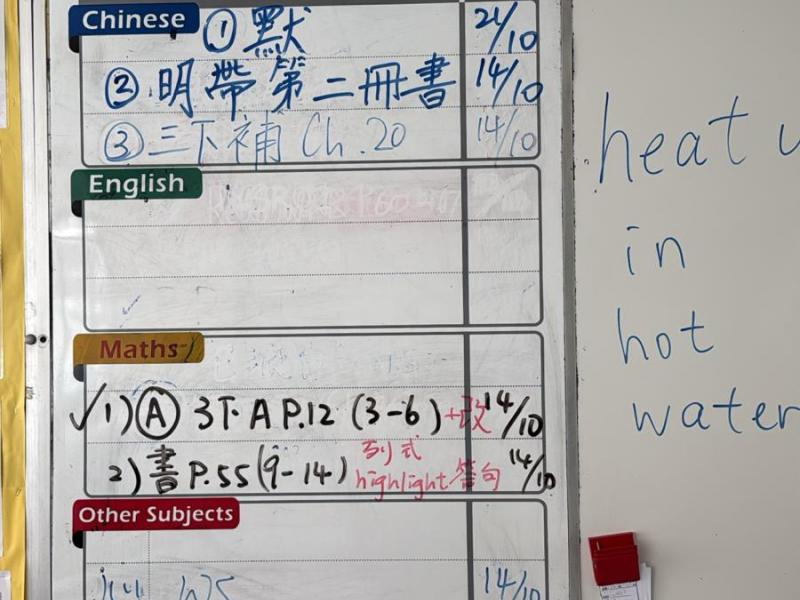 Chinese ① 默 21/10
② 明帶第二冊書 14/10
③ 三下補 Ch.20 14/10
English
Maths
✓ 1) Ⓐ 3下 A P.12 (3-6) +改 14/10
2) 書 P.55 (9-14) 列式 highlight 答句 14/10
Other Subjects
WS 14/10
heat u
in
hot
water